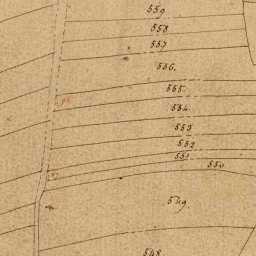 559
558
557
556.
555.
554
553
552
551
550
549.
548